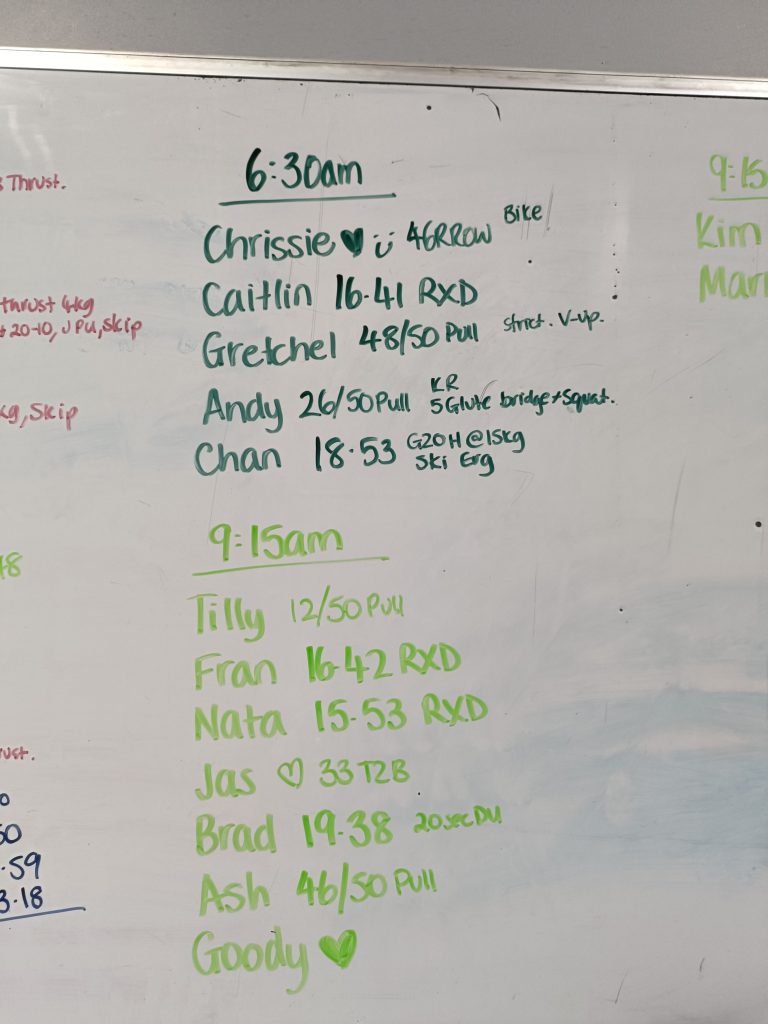 6:30am
Chrissie ♥ 46RROW Bike
Caitlin 16.41 RXD
Gretchel 48/50 Pull strict. V-up.
Andy 26/50 Pull KR
5 Glute bridge + Squat.
Chan 18.53 G2OH @ 15kg
Ski Erg
9:15am
Tilly 12/50 Pull
Fran 16.42 RXD
Nata 15.53 RXD
Jas ♡ 33 T2B
Brad 19.38 20sec DU
Ash 46/50 Pull
Goody ♥
Thrust.
thrust 4kg
20-10, JPU, skip
kg, Skip
48
ust.
50
.59
3.18
9:15
Kim